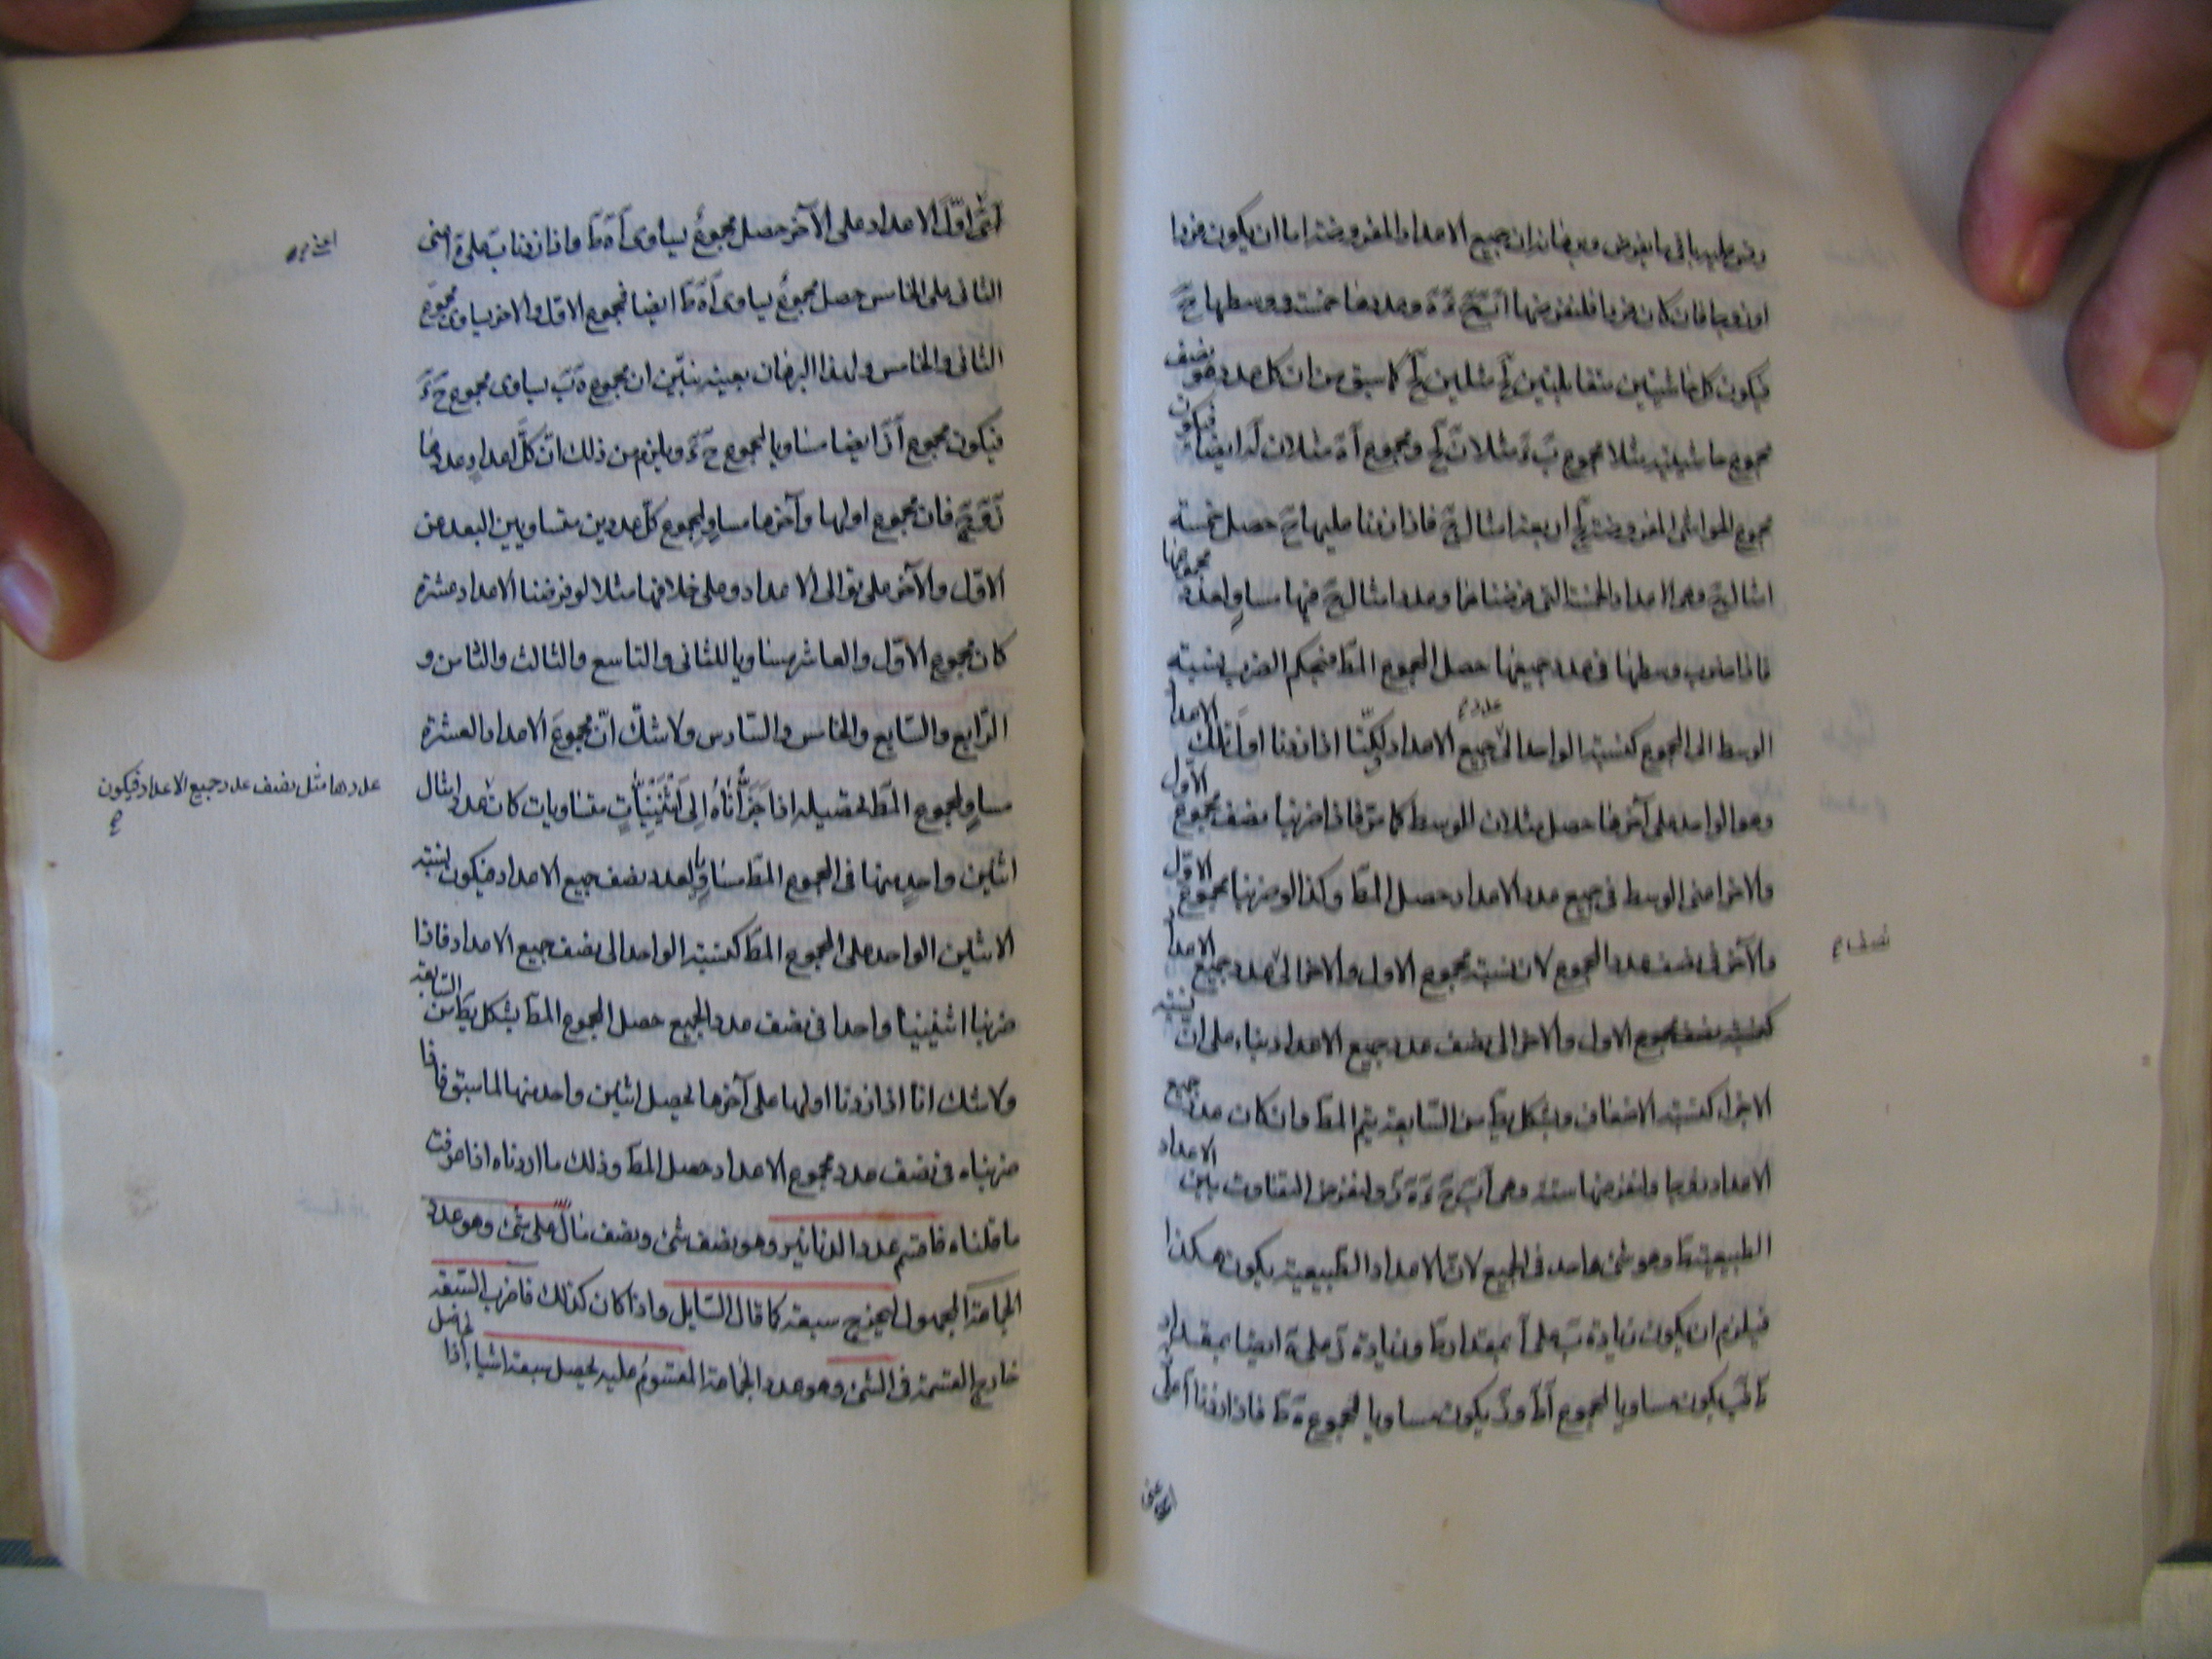 وقس عليه باقي ما يفرض وبرهانه ان جميع الاعداد المفروضة اما ان يكون فردا
او زوجا فان كان فردا فلنفرضها ا ب ج د ه وعددها خمسة ووسطها ج
فيكون كل حاشيتين متقابلتين لج مثلين لج كما سبق من ان كل عدد هو نصف
مجموع حاشيتيه مثلا مجموع ب د مثلان لج ومجموع ا ه مثلان له ايضا فيكون
مجموع الحواشى المفروضة لج اربعة امثال ج فاذا زدنا عليها ج حصل خمسة
امثال ج وهى الاعداد الخمسة التى فرضناها وعدد امثال ج فيها مساو لعدد مجموعها
فاذا ضرب وسطها فى عدد جميعها حصل المجموع المط فبحكم الضرب نسبة
الوسط الى المجموع كنسبة الواحد الى عدد جميع الاعداد لكنا اذا زدنا اول تلك الاعداد
وهو الواحد على آخرها حصل مثلان للوسط كما مر فاذا ضربنا نصف مجموع الاول
والاخر اعنى الوسط فى جميع عدد الاعداد حصل المط وكذا لو ضربنا مجموع الاول
والآخر فى نصف عدد المجموع لان نسبة مجموع الاول والاخر الى عدد جميع الاعداد
كنسبة نصف مجموع الاول والاخر الى نصف عدد جميع الاعداد بناء على ان نسبة
الاجزاء كنسبة الاضعاف وبشكل يط من السابعة يتم المط وان كان عدد جميع
الاعداد زوجا ولنفرضها ستة وهى ا ب ج د ه ز ولنفرض التفاوت بين الاعداد
الطبيعية ط وهو شئ واحد فى الجميع لان الاعداد الطبيعية يكون هكذا
فيلزم ان يكون زيادة ب على ا بمقدار ط وزيادة ز على ه ايضا بمقدار
ط فب يكون مساويا لمجموع ا ط وز يكون مساويا لمجموع ه ط فاذا زدنا ا على
ز اعنى اول الاعداد على الآخر حصل مجموع يساوى ا ه ط واذا زدنا ب على ه اعنى
الثانى على الخامس حصل مجموع يساوى ا ه ط ايضا فمجموع الاول والاخر يساوى مجموع
الثانى والخامس ولهذا البرهان بعينه يتبين ان مجموع ه ب يساوى مجموع ج د
فيكون مجموع ا ز ايضا مساويا لمجموع ج د ويلزم من ذلك ان كل اعداد عددها
زوج فان مجموع اولها وآخرها مساو لمجموع كل عددين متساويين البعد من
الاول والآخر على توالى الاعداد وعلى خلافها مثلا لو فرضنا الاعداد عشرة
كان مجموع الاول والعاشر مساويا للثانى والتاسع والثالث والثامن و
الرابع والسابع والخامس والسادس ولا شك ان مجموع الاعداد العشرة
مساو لمجموع المط تحصيله اذا جزأناه الى اثنينيات متساويات كان عدد امثال
اثنين واحد منها فى المجموع المط مساويا لعدد نصف جميع الاعداد فيكون نسبة
عددها مثل نصف عدد جميع الاعداد فيكون
الاثنين الواحد على المجموع المط كنسبة الواحد الى نصف جميع الاعداد فاذا
ضربنا اثنينيا واحدا فى نصف عدد الجميع حصل المجموع المط بشكل يط من السابعة
ولا شك انا اذا زدنا اولها على آخرها يحصل اثنين واحد منها لما سبق فاذا
ضربناه فى نصف عدد مجموع الاعداد حصل المط وذلك ما اردناه اذا عرفت
ما قلناه فاقسم عدد الدنانير وهو نصف شئ ونصف مال على شئ وهو عدد
الجماعة المجهول ليخرج سبعة كما قال السايل واذا كان كذلك فاضرب السبعة
خارج القسمة فى الشئ وهو عدد الجماعة المقسوم عليه يحصل سبعة اشياء اذا